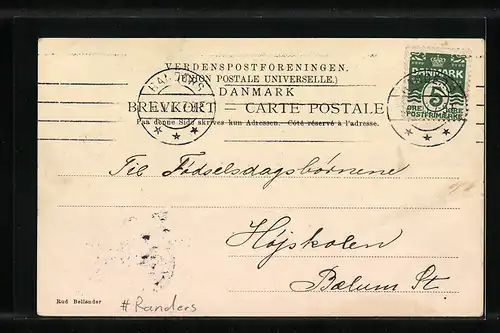 VERDENSPOSTFORENINGEN.
(UNION POSTALE UNIVERSELLE.)
DANMARK
BREVKORT = CARTE POSTALE
Paa denne Side skrives kun Adressen. Côté réservé à l'adresse.
DANMARK
5
ØRE ØRE
POSTFRIMÆRKE
Til Fødselsdagsbørnene
Højskolen
Bælum St
Rud Bellander
#Randers